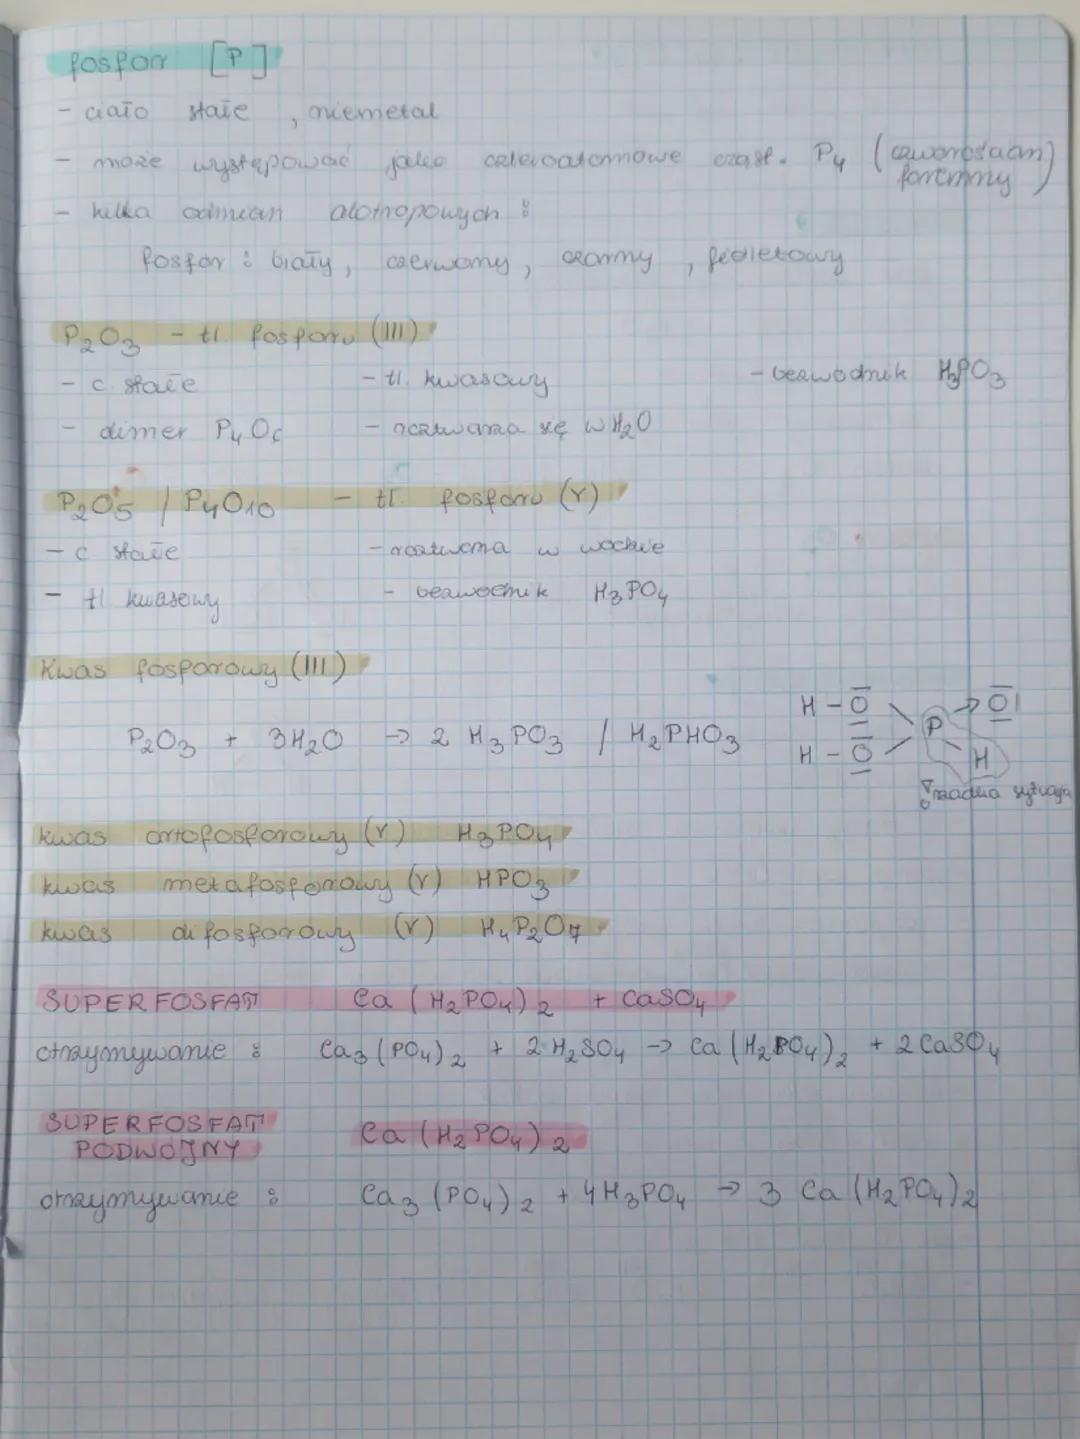 fosfor [P]
- ciało stałe, niemetal
- może występować jako czteroatomowe cząst. P₄ (czworościan foremny)
- kilka odmian alotropowych :
fosfor : biały, czerwony, czarny, fioletowy
P₂O₃ - tl. fosforu (III)
- c. stałe - tl. kwasowy - bezwodnik H₃PO₃
- dimer P₄O₆ - roztwarza się w H₂O
P₂O₅ / P₄O₁₀ - tl. fosforu (V)
- c stałe - roztwarza w wodzie
- tl kwasowy - bezwodnik H₃PO₄
Kwas fosforowy (III)
P₂O₃ + 3H₂O → 2 H₃PO₃ / H₂PHO₃
H - O
P → O
H - O
H
rzadka sytuacja
kwas ortofosforowy (V) H₃PO₄
kwas metafosforowy (V) HPO₃
kwas difosforowy (V) H₄P₂O₇
SUPERFOSFAT Ca(H₂PO₄)₂ + CaSO₄
otrzymywanie : Ca₃(PO₄)₂ + 2 H₂SO₄ → Ca(H₂PO₄)₂ + 2 CaSO₄
SUPERFOSFAT
PODWÓJNY Ca(H₂PO₄)₂
otrzymywanie : Ca₃(PO₄)₂ + 4H₃PO₄ → 3 Ca(H₂PO₄)₂